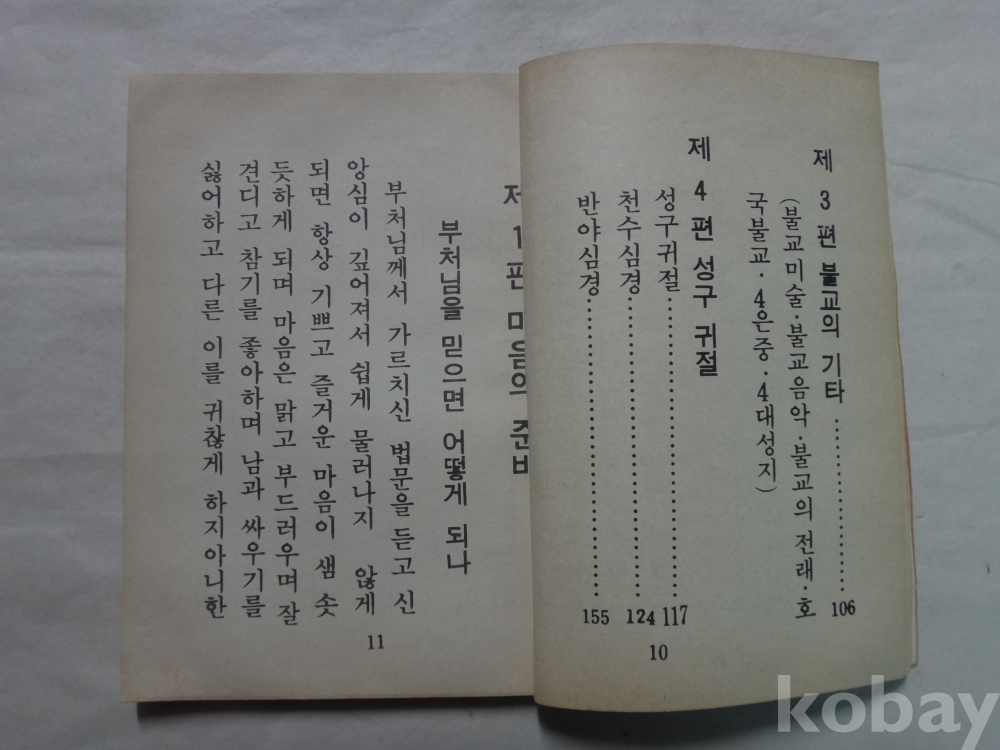 제 3 편 불교의 기타 ················ 106
(불교미술·불교음악·불교의 전래·호
국불교·4은중·4대성지)
제 4 편 성구 귀절
성구귀절 ························ 117
천수심경 ························ 124
반야심경 ························ 155
10
제 1 편 마음의 준비
부처님을 믿으면 어떻게 되나
부처님께서 가르치신 법문을 듣고 신
앙심이 깊어져서 쉽게 물러나지 않게
되면 항상 기쁘고 즐거운 마음이 샘 솟
듯하게 되며 마음은 맑고 부드러우며 잘
견디고 참기를 좋아하며 남과 싸우기를
싫어하고 다른 이를 귀찮게 하지아니한
11
kobay